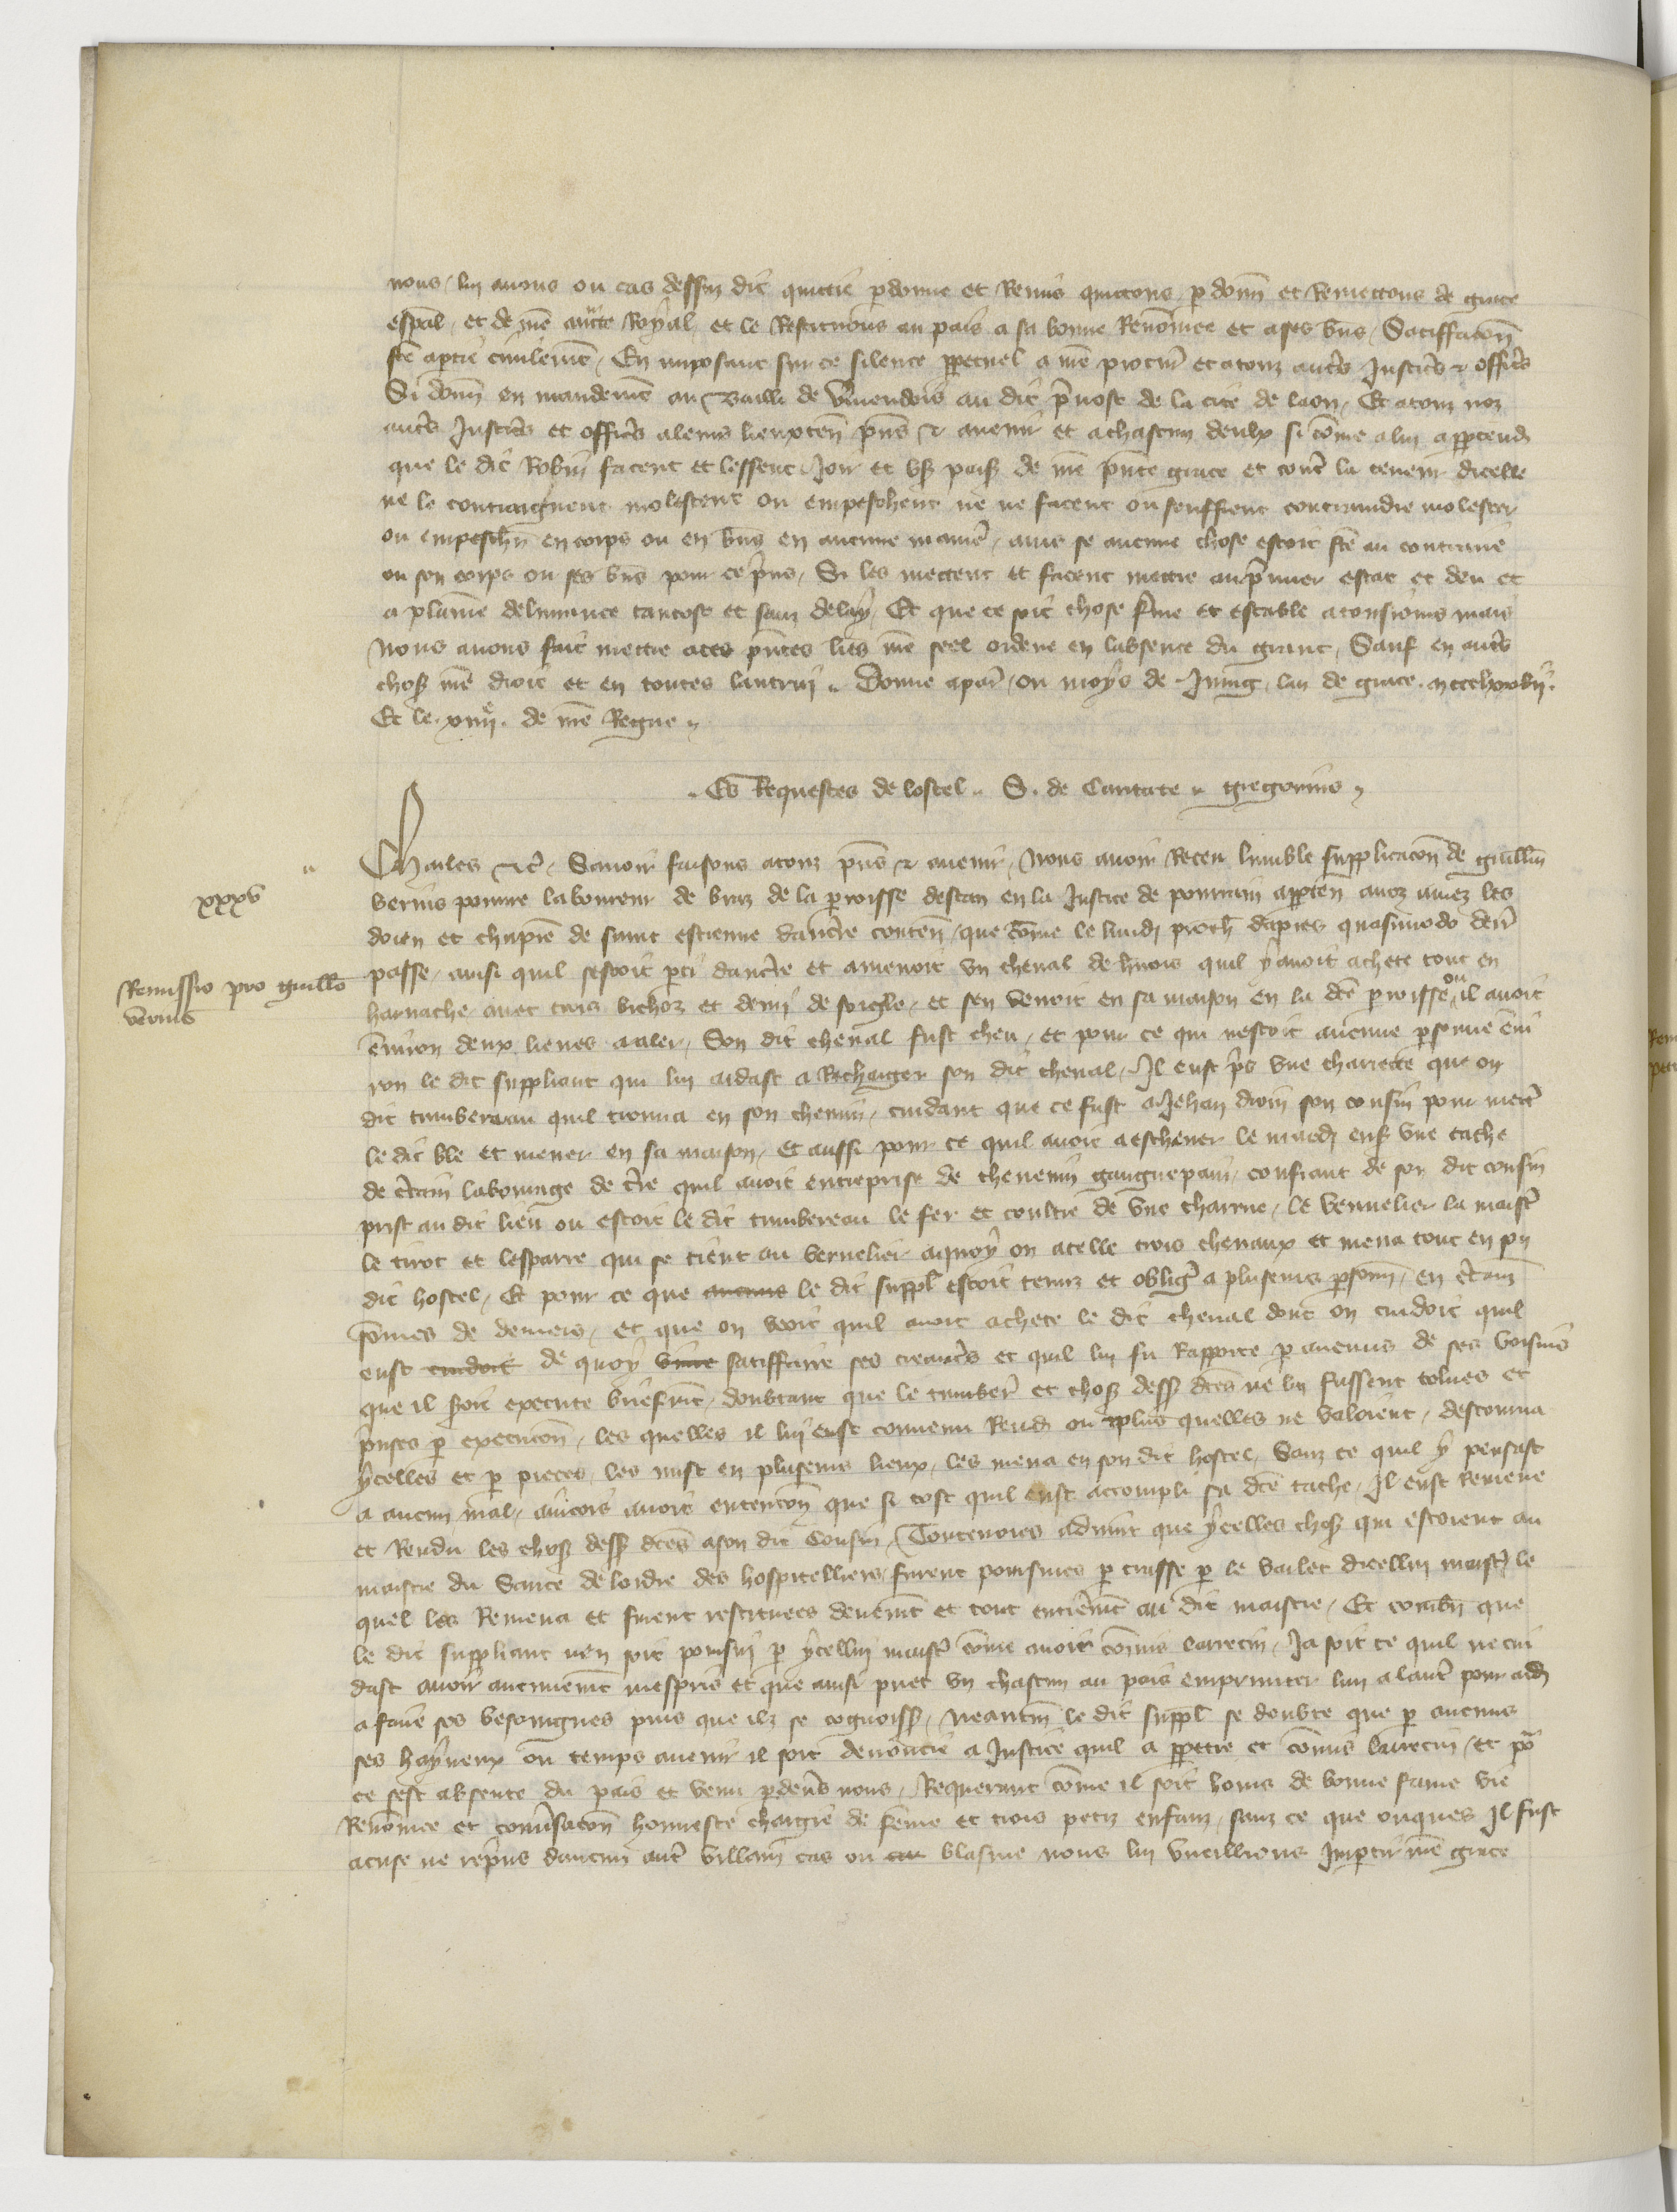 nous luy avons ou cas dessus dit quictie pdonne et Remis quictons pdonn et Remectons de grace
espal et de nre aucte Royal et le Restituons au pais a sa bonne Renomee et a ses bns Satisffacon
fte aptie civilemt En imposant sur ce silence ppetuel a nre procur et a touz autrs Justicrs & officrs
Si donn en mandemt au Bailli de Vmendois au dit prevost de la cite de laon Et a touz noz
autrs Justicrs et officrs a leurs lieuxten pns & avenir et a chascun deulx si come a lui apptend
que le dit Robin facent et lessent Joir et us paisz de nre pnte grace et contr la teneur dicelle
ne le contraignent molestent ou empeschent ne ne facent ou seuffrent contraindre molester
ou empeschr en corps ou en bns en aucune manier aincs se aucune chose estoit fte au contraire
ou son corps ou ses bns pour ce prins Si les mettent et facent mettre au prmier estat et deu et
a plaine delivrance tantost et sanz delay Et que ce soit chose fme et estable a tousjours mais
Nous avons fait mettre a ces pntes lres nre seel ordene en labsence du grant Sauf en autrs
chosz nre droit et en toutes lautruj Donne a par ou moys de Juing lan de grace mccciiiixxvij
Et le xiiije de nre Regne
Es Requestes de lostel S. de Cantate gregorius
xxxv
Charles &c Savoir faisons a touz pns & avenir Nous avoir Receu lumble supplicacon de guillm
verins povre laboureur de braz de la proisse descan en la Justice de pourrain apprten a noz amez les
doien et chapitre de saint estienne daucrre conten que come le lundj proch dapres quasimodo derr
Remissio pro guillo
verins
passe ainsi quil sestoit pti daucrre et amenoit un cheval de linois quil y avoit achete tout en
harnache avec trois bichoz et demj de soigle et sen venoit en sa maison en la dce proisse ou il avoit
environ deux lieues a aler Son dit cheval fust cheu et pour ce qui nestoit aucune psonne envi
ron le dit suppliant qui lui aidast a Rechargier son dit cheval Il eust prs une charrette que on
dit tumbereau quil trouva en son chemin cuidant que ce fust a Jehan droin son cousin pour mectr
le dit ble et mener en sa maison Et aussi pour ce quil avoit a eschever le mardj ens une tache
de crtain labourage de trre quil avoit entreprise de thevenin gaingnepain confiant de son dit cousin
prist au dit lieu ou estoit le dit tumbereau le fer et coultre de une charrue le vernelier la maistr
le tirot et lesparre qui se tient au vernelier a quoy on atelle trois chevaux et mena tout en son
dit hostel Et pour ce que aucuns le dit suppl estoit tenuz et obligr a plusieurs psonn en crtains
somes de deniers et que on veoit quil avoit achete le dit cheval dont on cuidoit quil
eust cuidoit de quoy satisffaire ses creancrs et quil lui fu Rapporte p aucuns de ses voisins
que il seroit execute briefmt doubtant que le tumber et chosz desss dces ne luy fussent tolues et
prinses p execucon les quelles il luy eust convenu Rendr ou plus quelles ne valoient destourna
ycelles et p pieces les mist en plusieurs lieux les mena en son dit hostel Sanz ce quil y pensast
a aucun mal aincois avoit entencon que si tost quil eust accompli sa dce tache Il eust Remene
et Rendu les chosz desss dces a son dit Cousin Toutevoies advint que ycelles chosz qui estoient au
maistre du Sauce de lordre des hospitelliers furent poursuies p trasse p le varlet dicellui maistr le
quel les Remena et furent restituees deuemt et tout entieremt au dit maistre Et combn que
le dit suppliant nen soit poursui p ycelluy maistr come avoir comis larrecin Ja soit ce quil ne cui
dast avoir aucunemt mespris et que ainsi puet un chascun au pais emprunter lun a lautr pour aidr
a faire ses besoingnes puis que ilz se cognoissz Neantms le dit suppl se doubte que p aucuns
ses hayneux ou temps avenir il soit denoncie a Justice quil a ppetre et comis larrecin Et por
ce sest absente du pais et venu pdevrs nous Requerant come il soit homs de bonne fame vie
Renomee et convrsacon honneste chargie de feme et trois petiz enfanz sanz ce que onques Il fust
acuse ne reprins daucun autr villain cas ou blasme nous lui vueillions Impartir nre grace